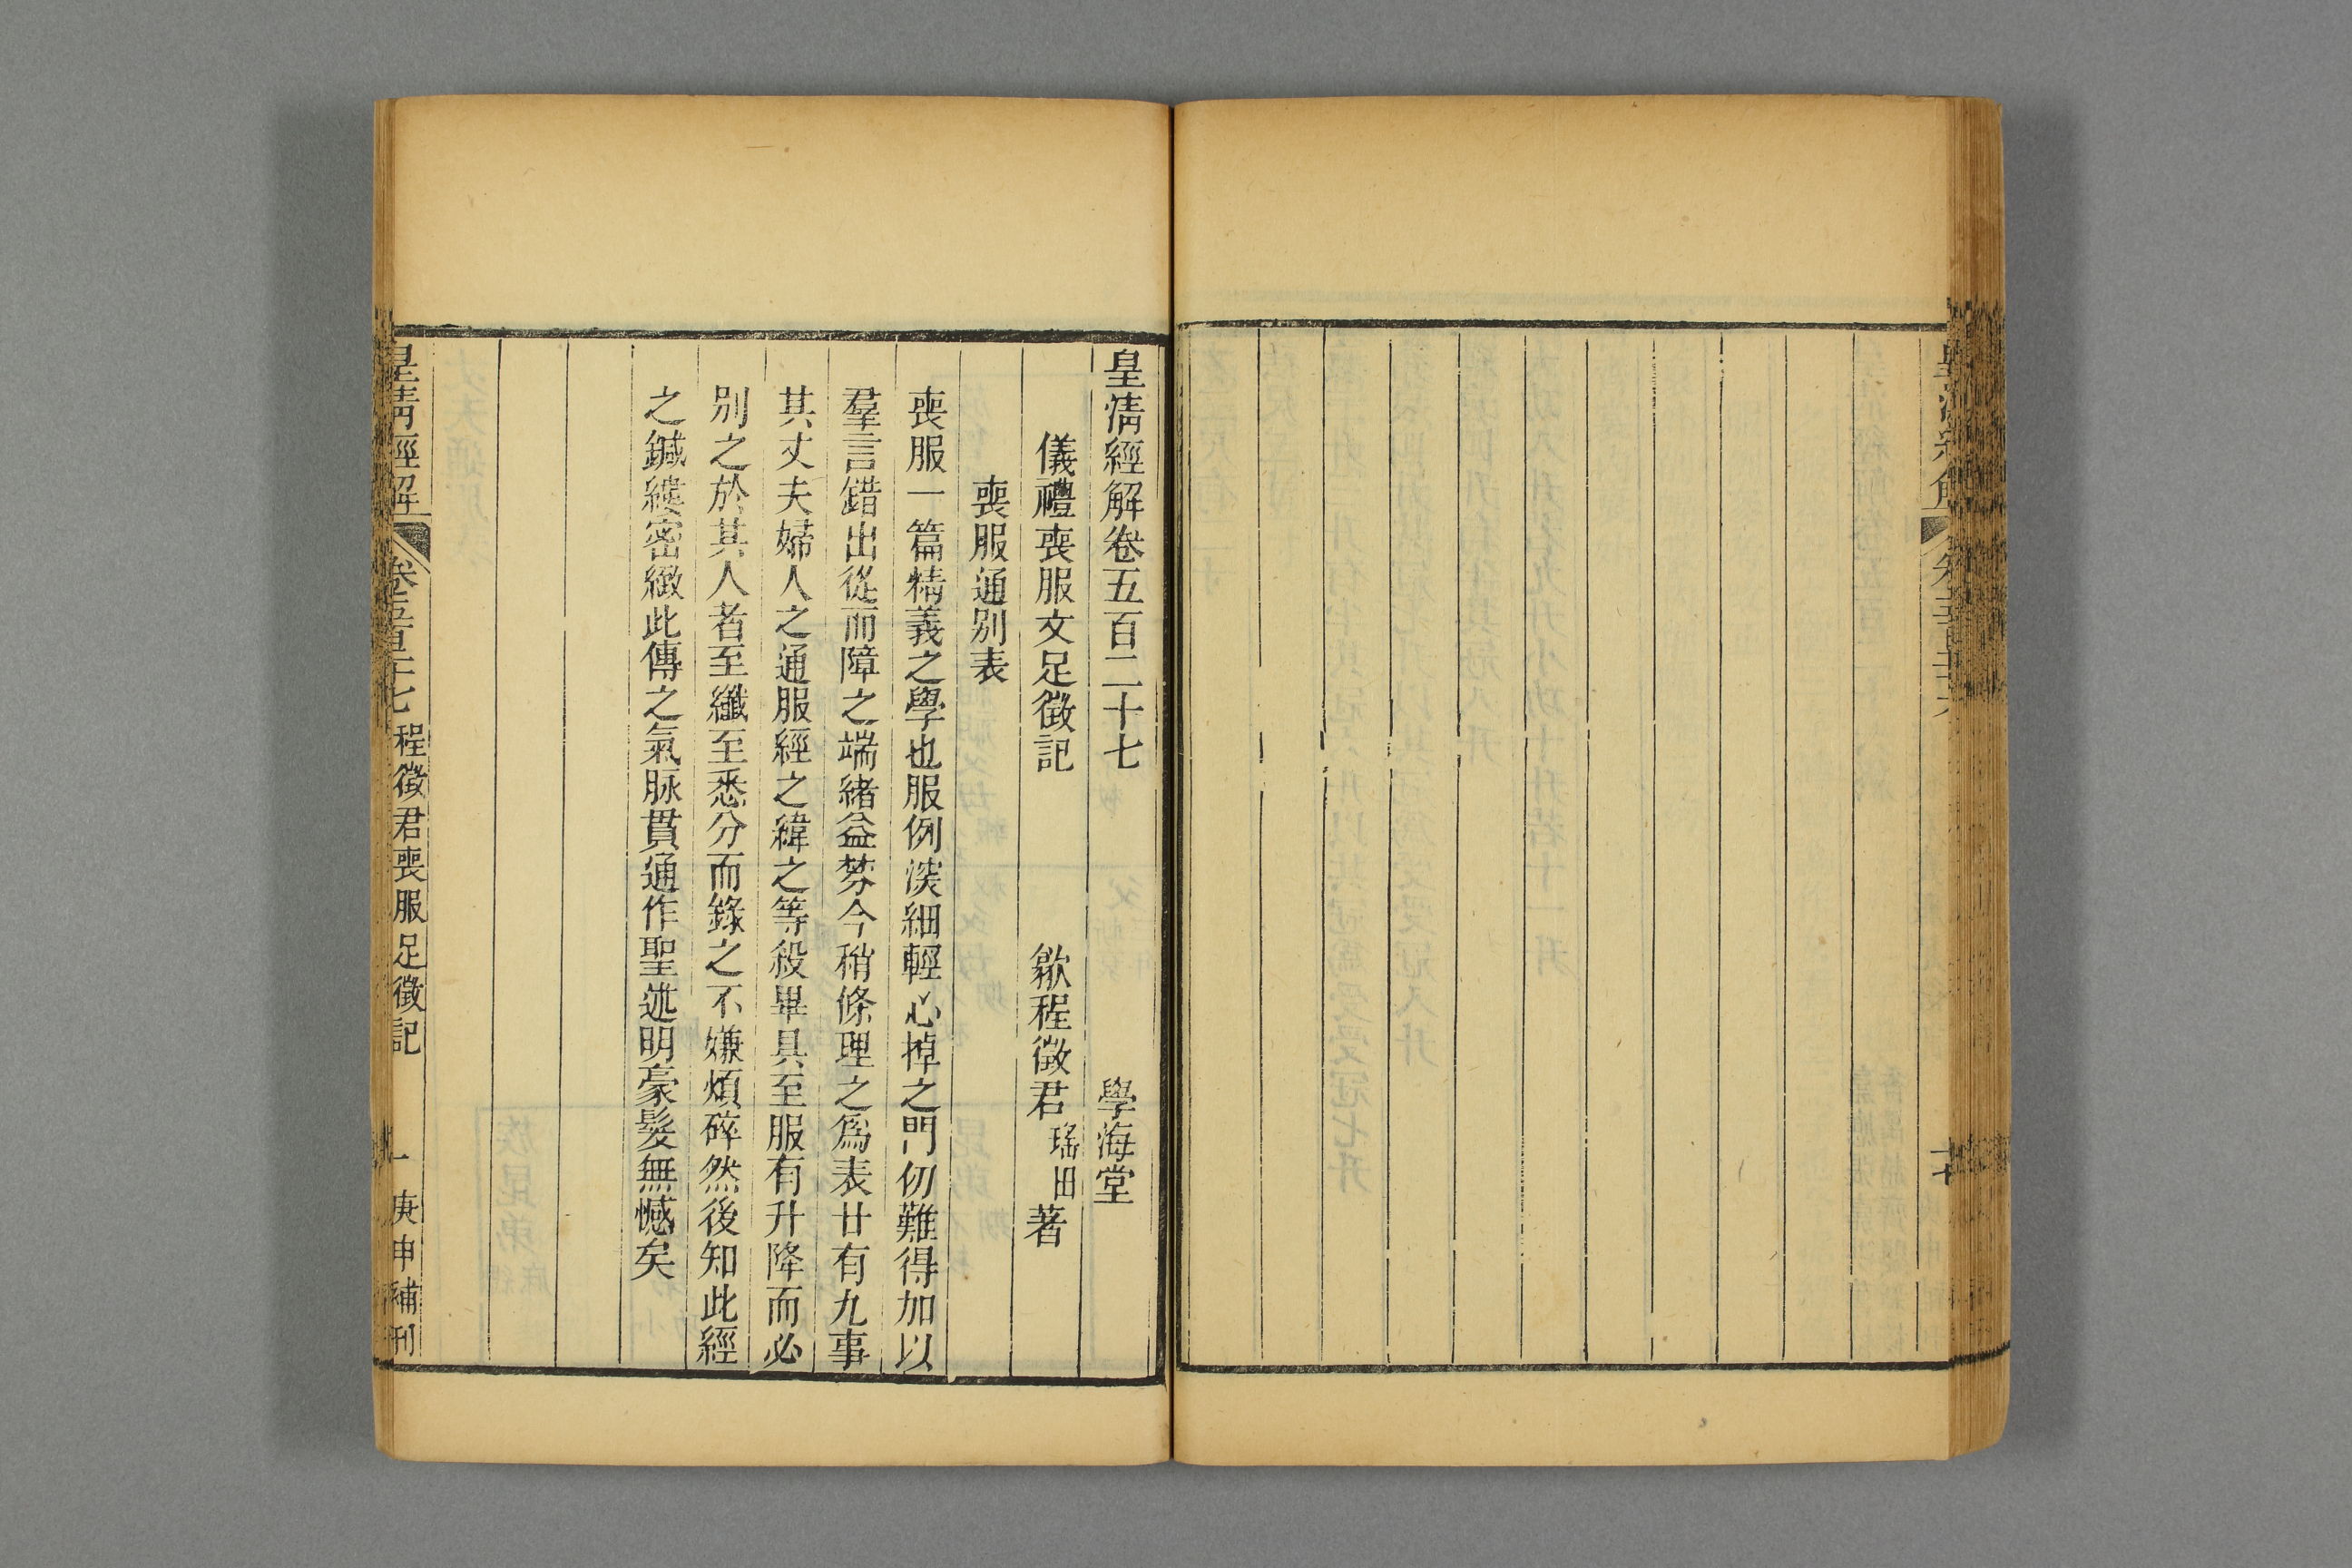 皇清經解卷五百二十七
學海堂
儀禮喪服文足徵記
歙程徵君瑤田著
喪服通別表
喪服一篇精義之學也服例淡細輕心掉之門仞難得加以
羣言錯出從而障之端緒益棼今稍條理之爲表廿有九事
其丈夫婦人之通服經之緯之等殺畢具至服有升降而必
别之於其人者至纖至悉分而錄之不嫌煩碎然後知此經
之鍼縷密緻此傳之氣脉貫通作聖述明豪髮無憾矣
皇清經解
卷五百二十七
程徵君喪服足徵記
一
庚申補刊